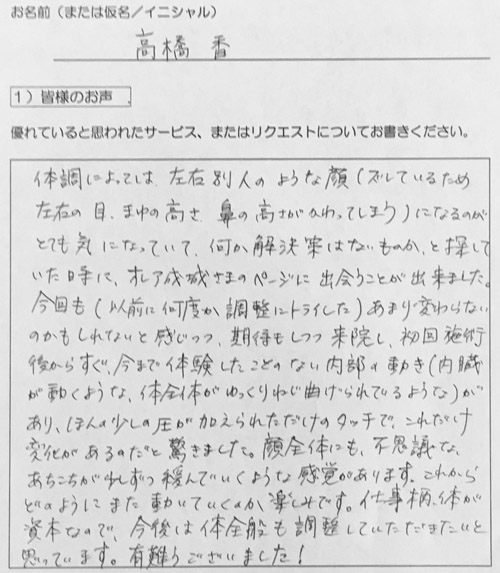 お名前(または仮名/イニシャル)
高橋 香
1)皆様のお声
優れていると思われたサービス、またはリクエストについてお書きください。
体調によっては、左右別人のような顔(ズレているため
左右の目、まゆの高さ、鼻の高さがかわってしまう)になるのが
とても気になっていて、何か解決策はないものか、と探して
いた日時に、オレア成城さまのページに出会うことが出来ました。
今回も(以前に何度か調整にトライした)あまり変わらない
のかもしれないと感じつつ、期待もしつつ来院し、初回施術
後からすぐ、今まで体験したことのない内部の動き(内臓
が動くような、体全体がゆっくりねじ曲げられているような)が
あり、ほんの少しの圧が加えられただけのタッチで、これだけ
変化があるのだと驚きました。顔全体にも、不思議な、
あちこちが少しずつ緩んでいくような感覚があります。これから
どのようにまた動いていくのか楽しみです。仕事柄、体が
資本なので、今後は体全般も調整していただきたいと
思っています。有難うございました!